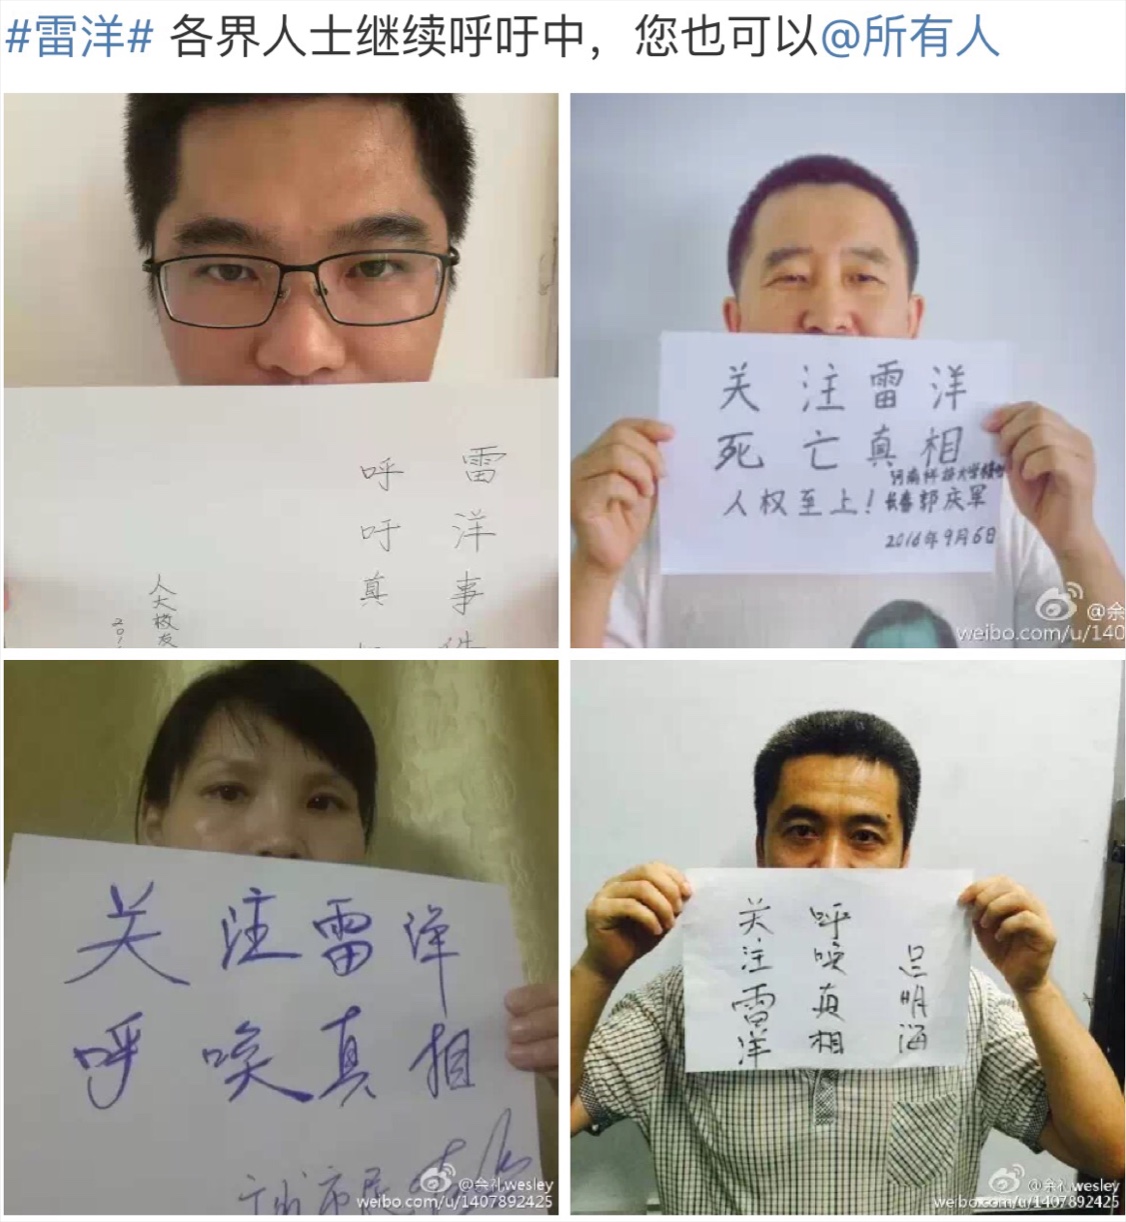 #雷洋# 各界人士继续呼吁中，您也可以@所有人
雷洋事件
呼吁真
人大校友
201
关注雷洋
死亡真相
河南科技大学
人权至上！长春郭庆军
2016年9月6日
@余
weibo.com/u/140
关注雷洋
呼唤真相
市民
@余礼wesley
weibo.com/u/1407892425
关注雷洋
呼唤真相
吕明海
@余礼wesley
weibo.com/u/1407892425